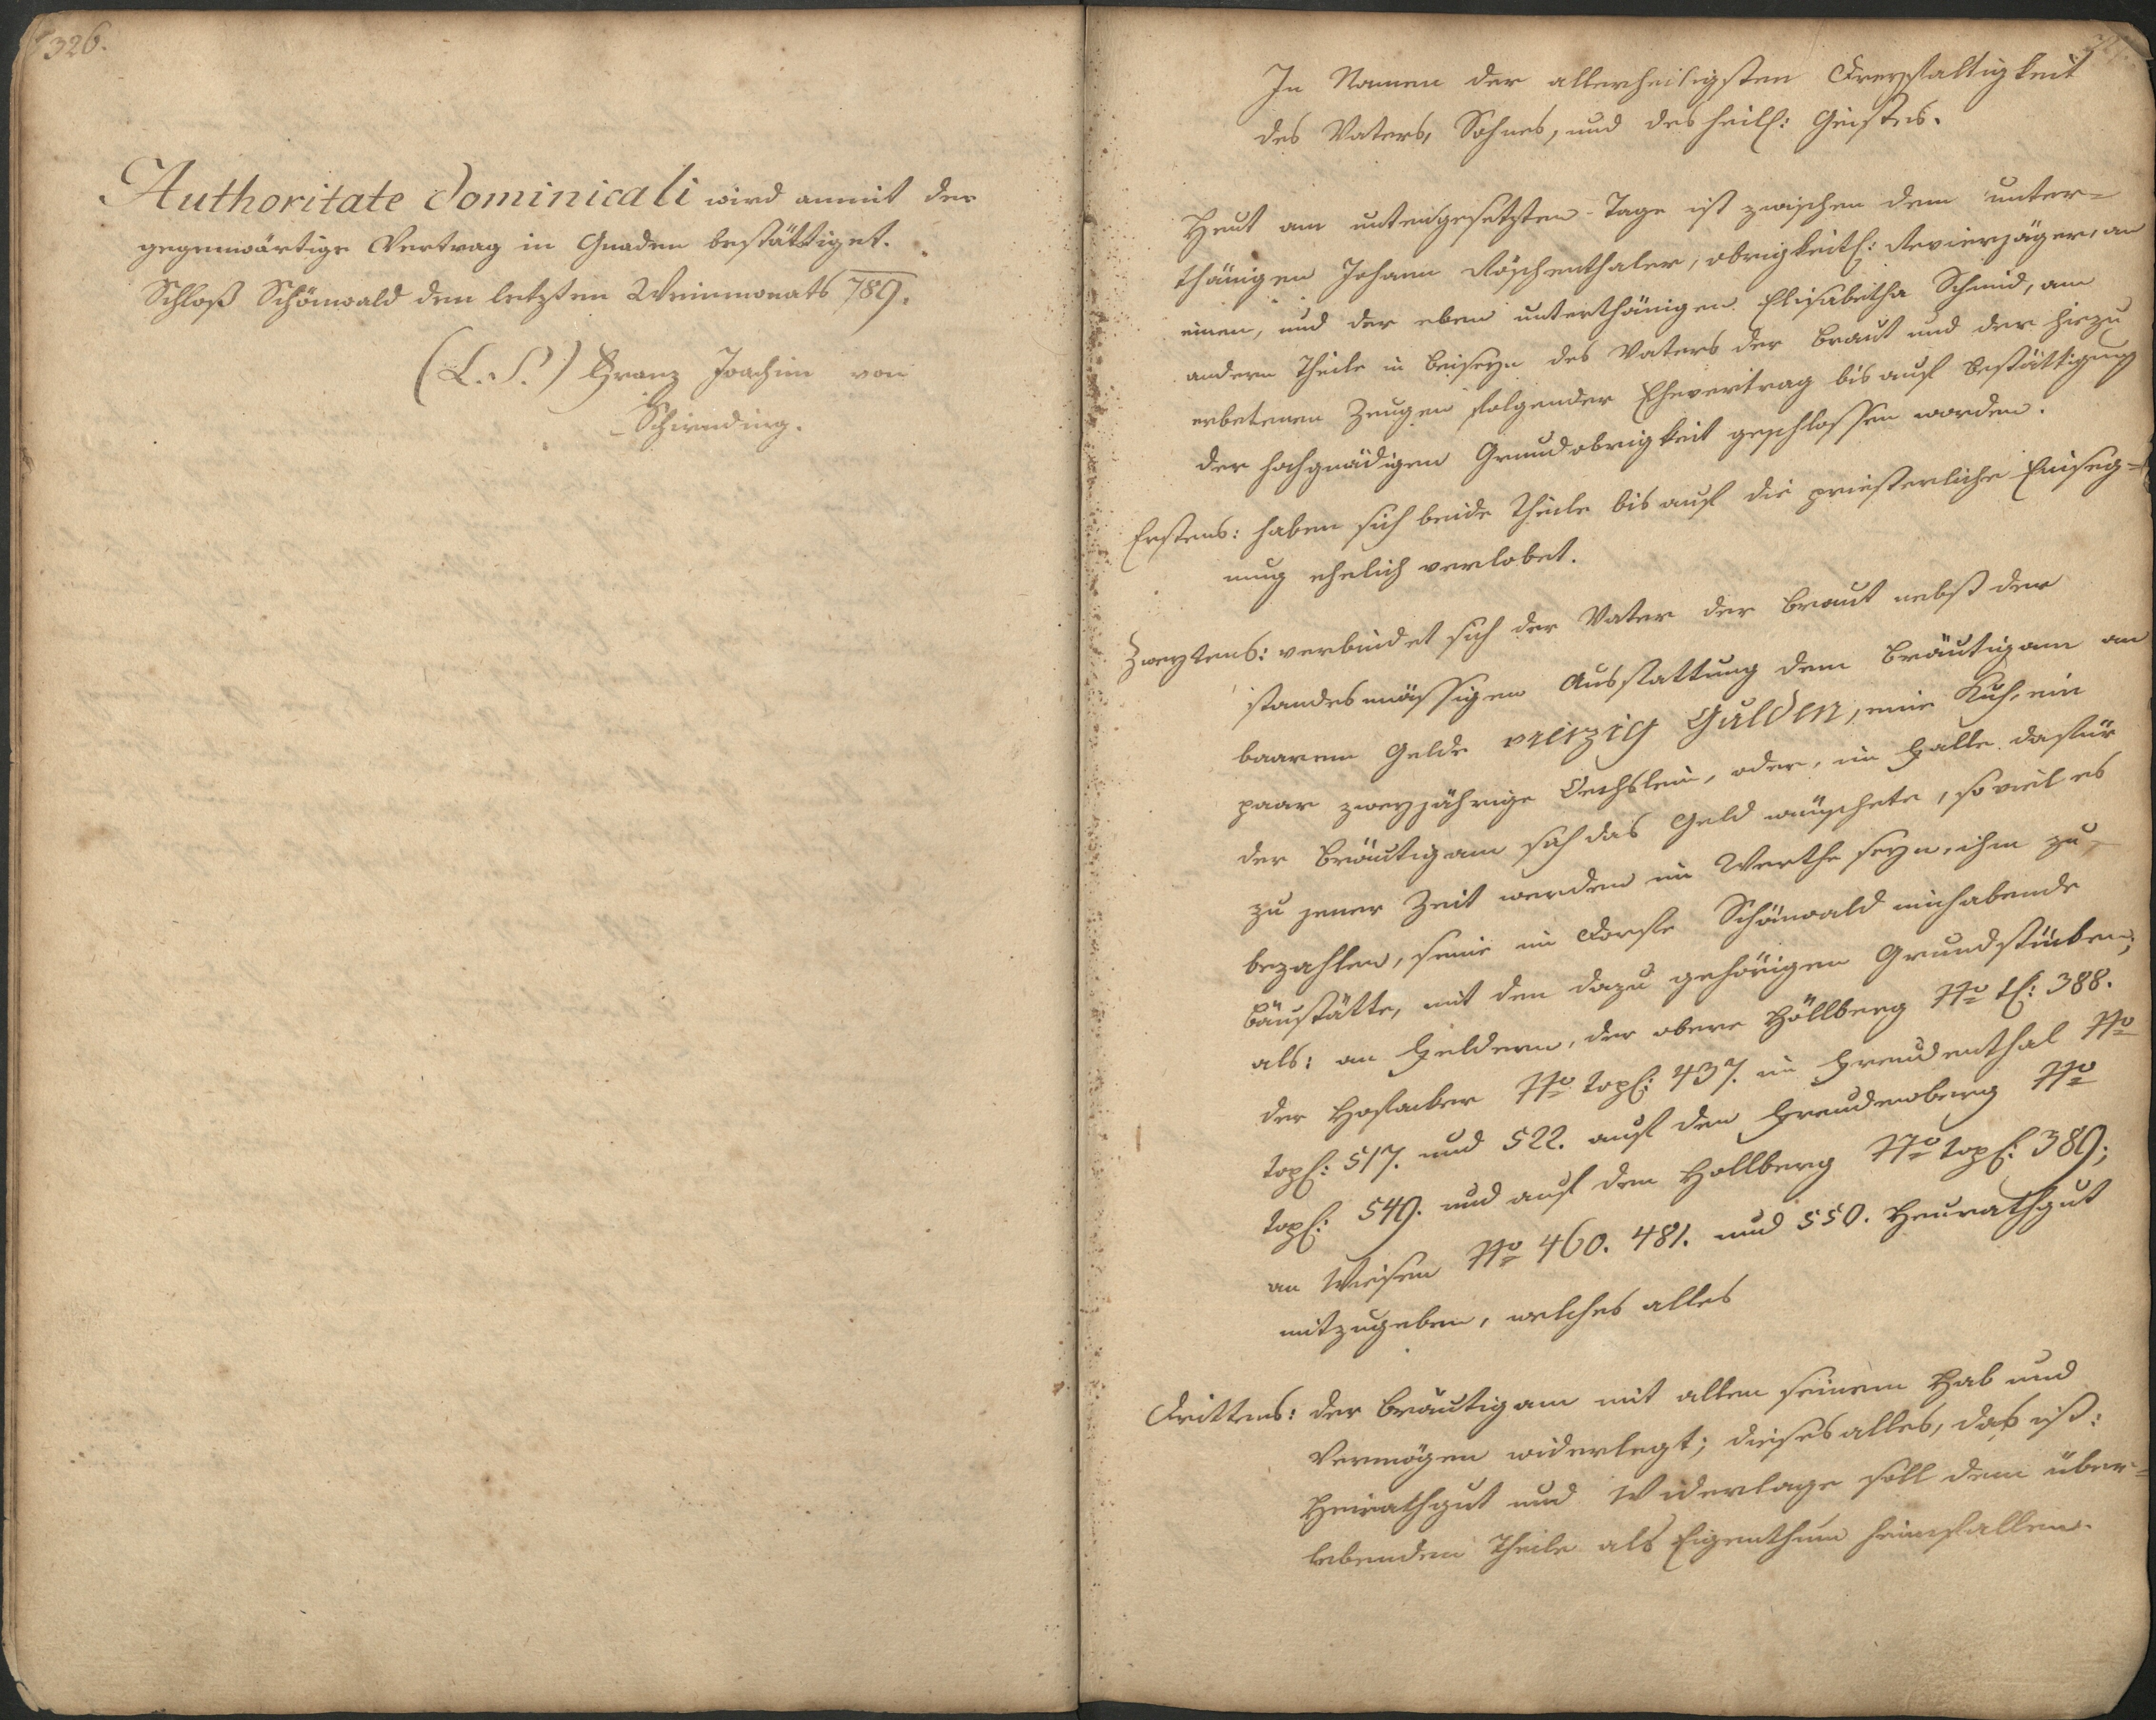 326.
Authoritate Dominicali wird anmit der
gegenwärtige Vertrag in Gnaden bestättiget.
Schloß Schönwald den letzten Weinmonats 789.
(L. S.) Franz Joachim von
Schirnding.
In Namen der allerheiligsten Dreyfaltigkeit
des Vaters, Sohnes, und des heil: Geistes.
Heut am untengesetzten Tage ist zwischen dem unter=
thänigen Johann Röschenthaler, obrigkeitl: Revierjäger, an
einen, und der eben unterthänigen Elisabetha Schmid, am
andern Theile in Beiseyn des Vaters der Braut und der hiezu
erbetenen Zeugen folgender Ehevertrag bis auf Bestättigung
der hochgnädigen Grundobrigkeit geschlossen worden.
Erstens: haben sich beide Theile bis auf die priesterliche Einseg=
nung ehelich verlobet.
Zweytens: verbindet sich der Vater der Braut nebst der
standesmässigen Ausstattung dem Bräutigam an
baarem Gelde vierzig Gulden, eine Kuh, ein
paar zweyjährige Oechslein, oder, im Falle dafür
der Bräutigam sich das Geld wünschete, so viel es
zu jener Zeit werden im Werthe seyn, ihm zu
bezahlen, seine im Dorfe Schönwald innhabende
Baustätte, mit den dazu gehörigen Grundstücken;
als: an Feldern, der obere Höllberg No tl: 388.
der Hofacker No topl: 437. im Freudenthal No
topl: 517. und 522. auf den Freudenberg No
topl: 549. und auf dem Hollberg No topl: 389;
an Wiesen No 460. 481. und 550. Heurathgut
mitzugeben, welches alles
Drittens: der Bräutigam mit allen seinem Hab und
Vermögen widerlegt; dieses alles, das ist:
Heirathgut und Widerlage soll dem über=
lebenden Theile als Eigenthum heimfallen.